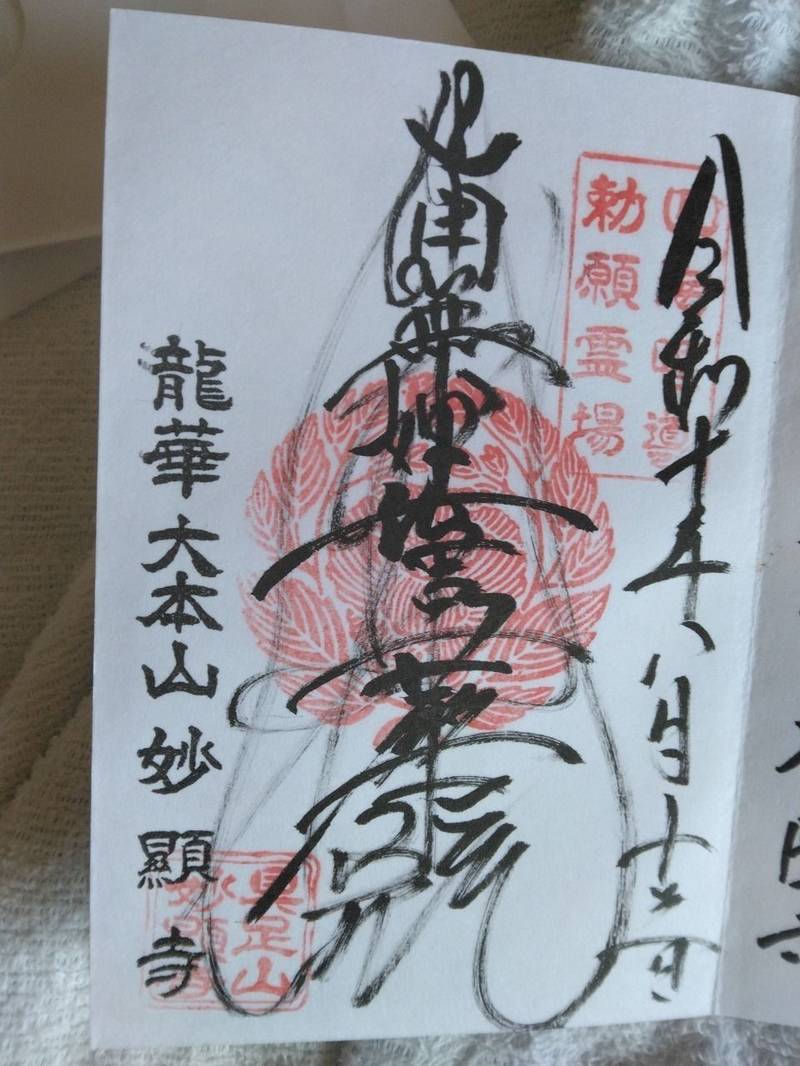 令和七年八月十六日
四海唱導
勅願霊場
南無妙法蓮華経
龍華 大本山 妙顯寺
具足山
妙顯寺